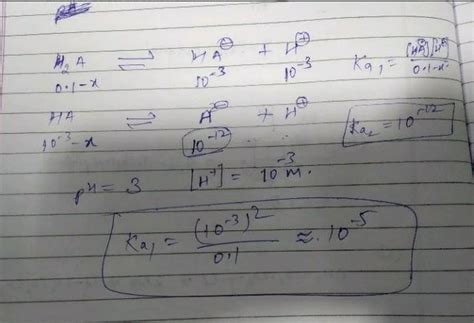 H₂A ⇌ HA⊖ + H⊕ Ka₁ = [HA⊖][H⊕]
0.1-x 10⁻³ 10⁻³ 0.1-x
HA ⇌ A⊖ + H⊕
10⁻³-x 10⁻¹² .. Ka₂ = 10⁻¹²
pH = 3 [H⁺] = 10⁻³ m.
Ka₁ = (10⁻³)² / 0.1 ≈. 10⁻⁵